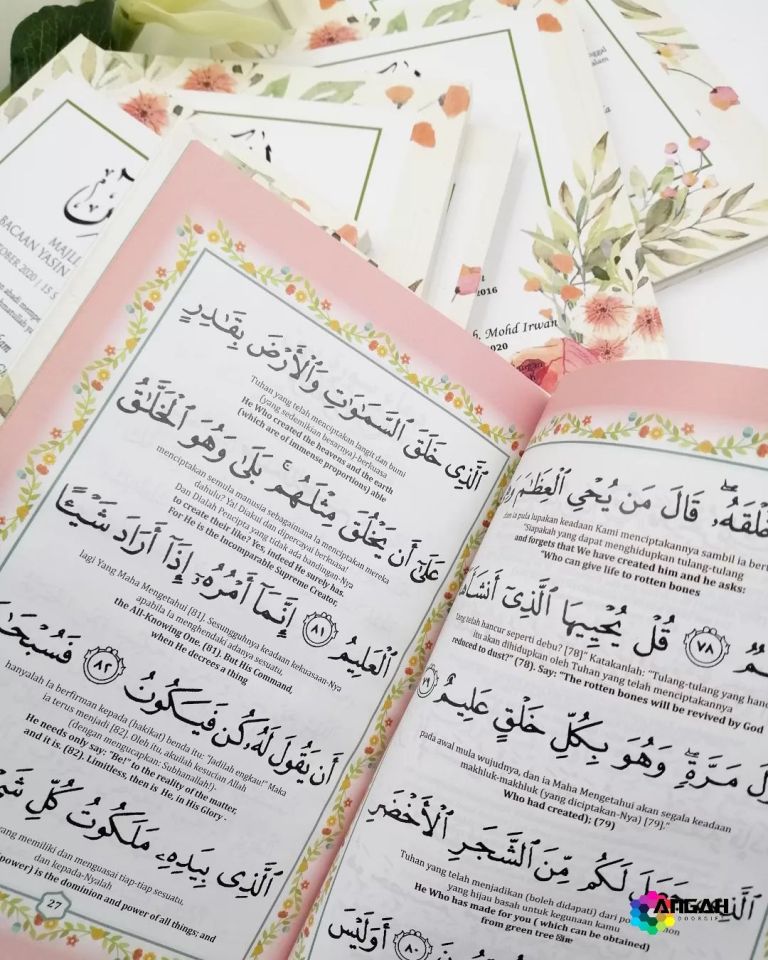 MAJLI
BACAAN YASIN
TOBER 2020 | 15 S
2016
h. Mohd Irwan
920
خَلْقَهُۥ ۖ قَالَ مَن يُحْىِ ٱلْعِظَٰمَ وَهِىَ
dan ia pula lupakan keadaan Kami menciptakannya sambil ia bert
"Siapakah yang dapat menghidupkan tulang-tulang
and forgets that We have created him and he asks:
"Who can give life to rotten bones
٧٨ قُلْ يُحْيِيهَا ٱلَّذِىٓ أَنشَأَهَا
yang telah hancur seperti debu? [78]" Katakanlah: "Tulang-tulang yang hanc
itu akan dihidupkan oleh Tuhan yang telah menciptakannya
reduced to dust?" (78). Say: "The rotten bones will be revived by God
مَرَّةٍ ۖ وَهُوَ بِكُلِّ خَلْقٍ عَلِيمٌ ٧٩
pada awal mula wujudnya, dan ia Maha Mengetahui akan segala keadaan
makhluk-makhluk (yang diciptakan-Nya) [79]."
Who had created); (79)
ٱلَّذِى جَعَلَ لَكُم مِّنَ ٱلشَّجَرِ ٱلْأَخْضَرِ
Tuhan yang telah menjadikan (boleh didapati) dari
yang hijau basah untuk kegunaan kamu
He Who has made for you ( which can be obtained)
from green tree
٨٠ أَوَلَيْسَ
ٱلَّذِى خَلَقَ ٱلسَّمَٰوَٰتِ وَٱلْأَرْضَ بِقَٰدِرٍ
Tuhan yang telah menciptakan langit dan bumi
(yang sedemikian besarnya)-berkuasa
He Who created the heavens and the earth
(which are of immense proportions) able
عَلَىٰٓ أَن يَخْلُقَ مِثْلَهُم ۚ بَلَىٰ وَهُوَ ٱلْخَلَّٰقُ
menciptakan semula manusia sebagaimana Ia menciptakan mereka
dahulu? Ya! Diakui dan dipercayai berkuasa!
Dan Dialah Pencipta yang tidak ada bandingan-Nya
to create their like? Yes, indeed He surely has.
For He is the Incomparable Supreme Creator,
ٱلْعَلِيمُ ٨١ إِنَّمَآ أَمْرُهُۥٓ إِذَآ أَرَادَ شَيْـًٔا
lagi Yang Maha Mengetahui [81]. Sesungguhnya keadaan kekuasaan-Nya
apabila Ia menghendaki adanya sesuatu.
the All-Knowing One. (81). But His Command,
when He decrees a thing
أَن يَقُولَ لَهُۥ كُن فَيَكُونُ ٨٢ فَسُبْحَٰنَ
hanyalah Ia berfirman kepada (hakikat) benda itu: "Jadilah engkau!" Maka
ia terus menjadi [82]. Oleh itu, akuilah kesucian Allah
(dengan mengucapkan: Subhanallah!)-
He needs only say: "Be!" to the reality of the matter,
and it is. (82). Limitless, then is He, in His Glory .
ٱلَّذِى بِيَدِهِۦ مَلَكُوتُ كُلِّ شَىْ
yang memiliki dan menguasai tiap-tiap sesuatu,
dan kepada-Nyalah
(power) is the dominion and power of all things; and
27